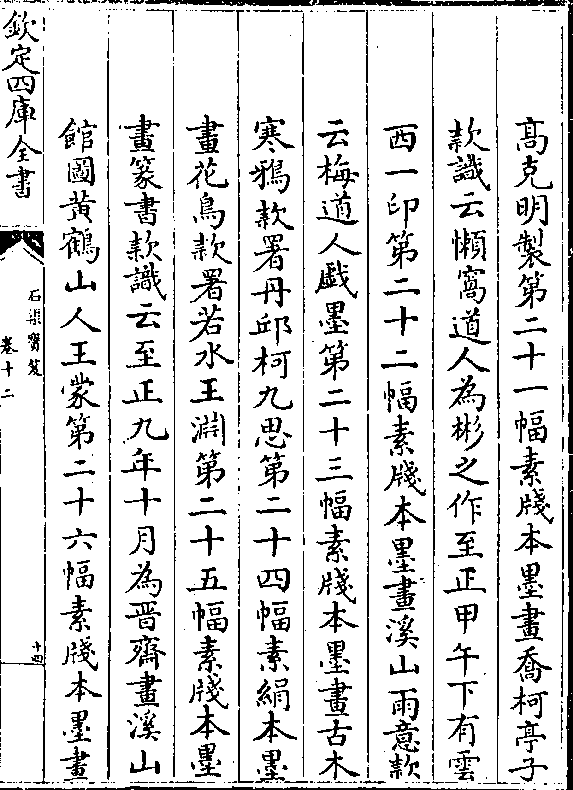 高克明製第二十一幅素牋本墨畫喬柯亭子
款識云懶窩道人為彬之作至正甲午下有雲
西一印第二十二幅素牋本墨畫溪山雨意款
云梅道人戲墨第二十三幅素牋本墨畫古木
寒鴉款署丹邱柯九思第二十四幅素絹本墨
畫花鳥款署若水王淵第二十五幅素牋本墨
畫篆書款識云至正九年十月為晋齋畫溪山
館圖黃鶴山人王蒙第二十六幅素牋本墨畫
欽定四庫全書
石渠寶笈
卷十二
十四